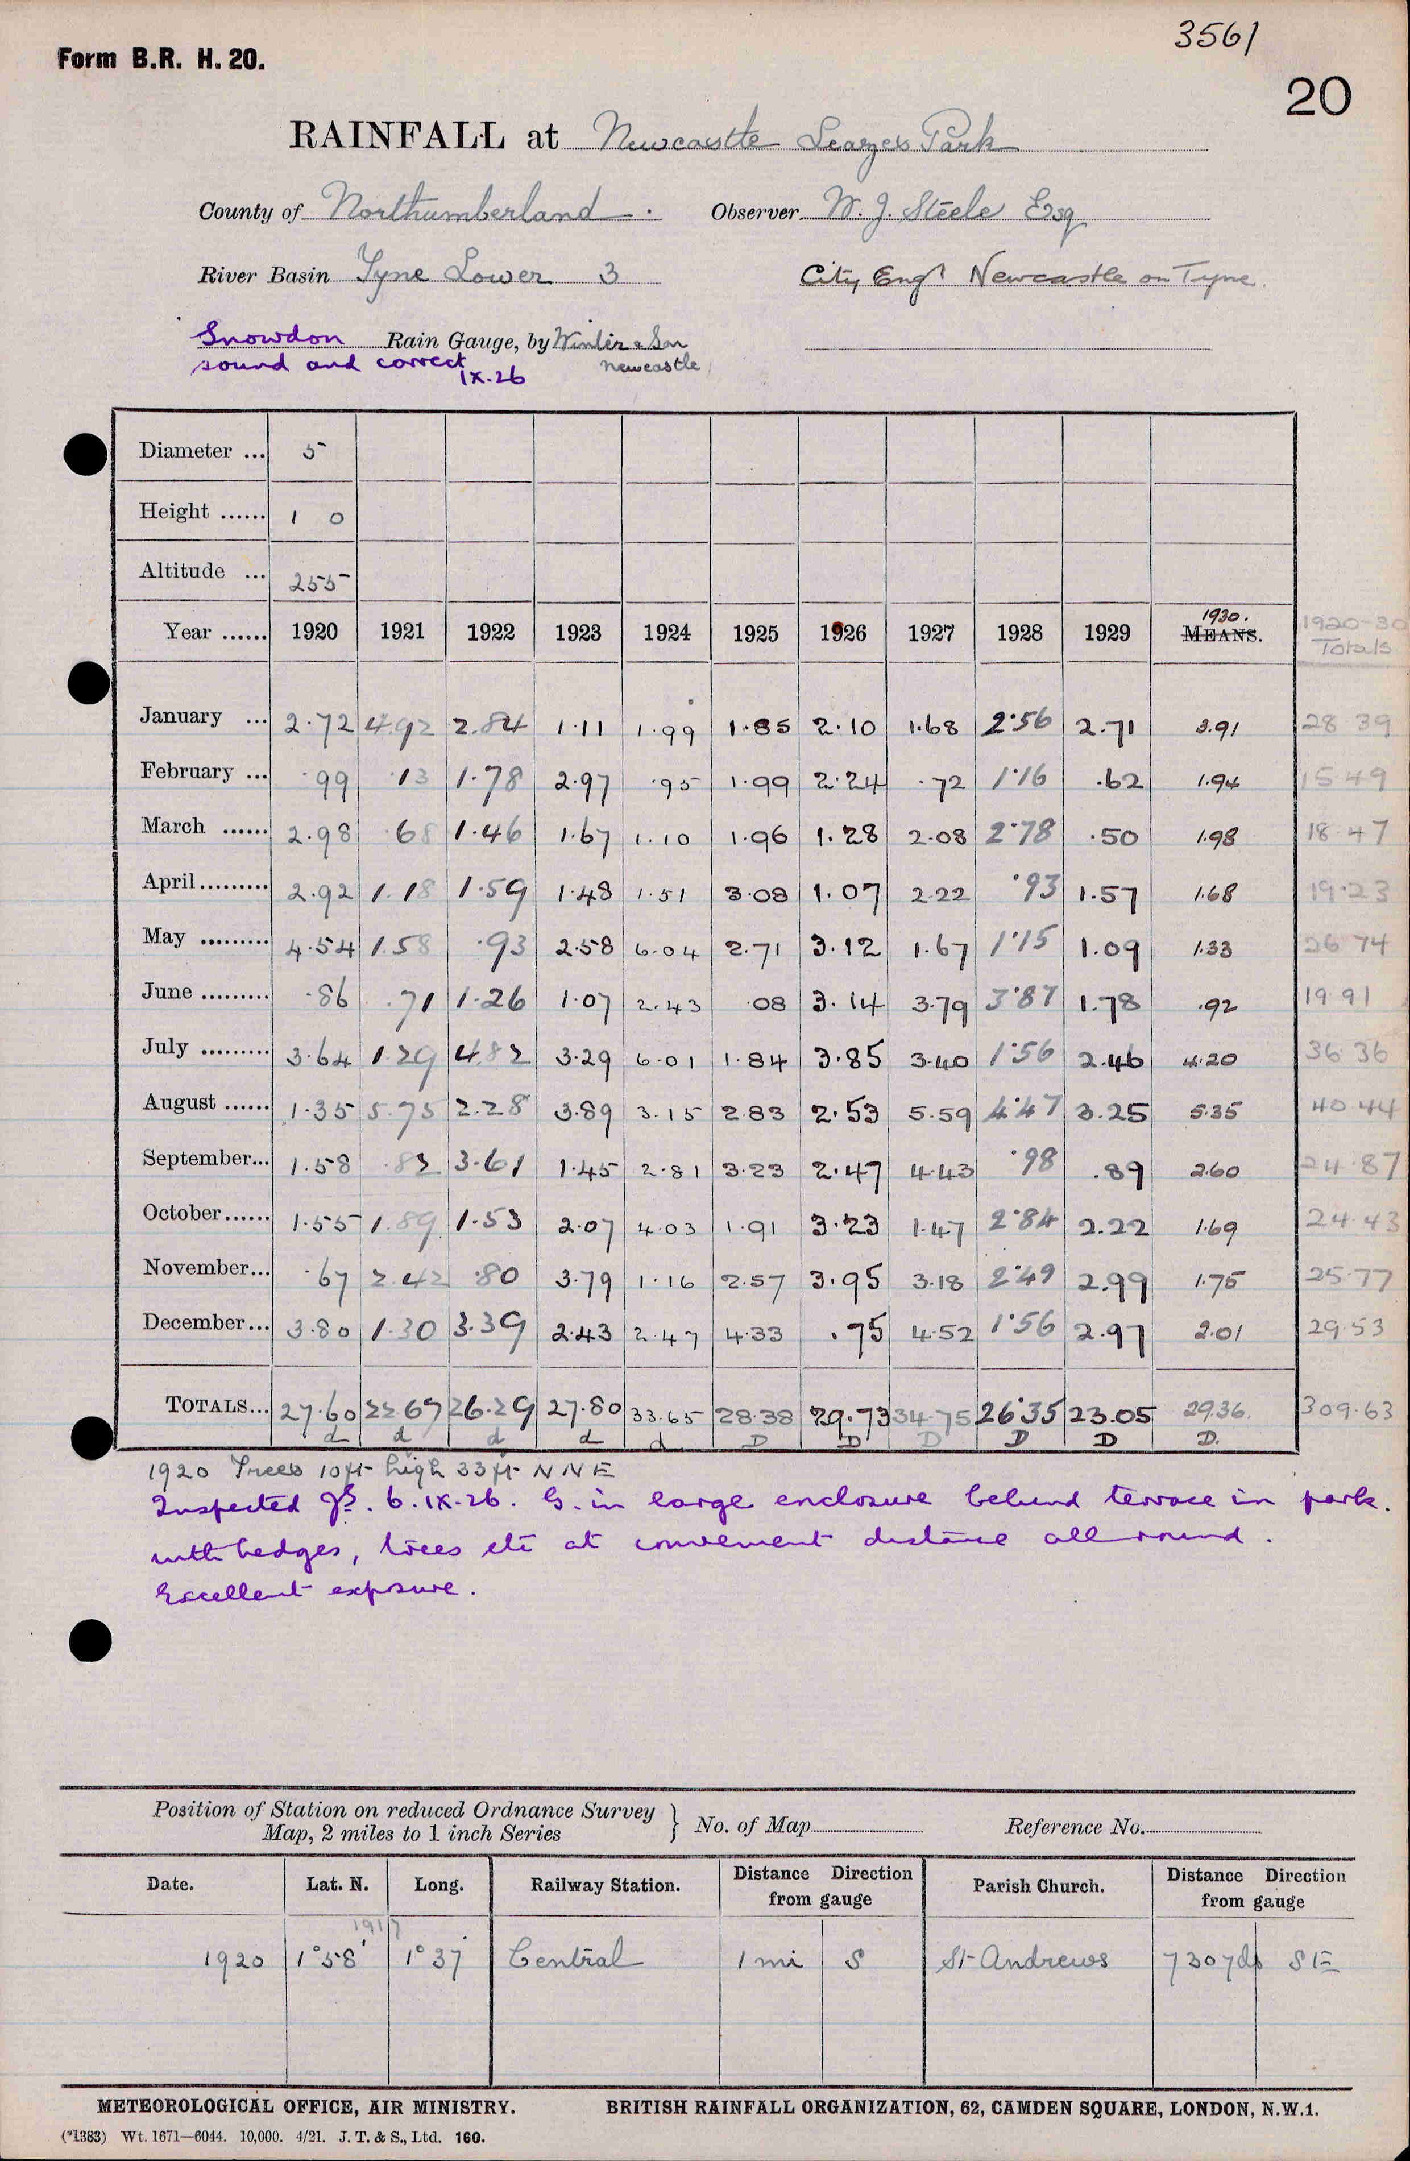 3561
Form B.R. H. 20.
20
RAINFALL at Newcastle Leazes Park
County of Northumberland. Observer W. J. Steele Esq
River Basin Tyne Lower 3 City Engr Newcastle on Tyne.
Snowdon Rain Gauge, by Winter & Son
sound and correct Newcastle
IX.26
Diameter ... 5
Height ...... 1 0
Altitude ... 255
1930. 1920-30
Year ...... 1920 1921 1922 1923 1924 1925 1926 1927 1928 1929 MEANS. Totals
January ... 2.72 4.92 2.84 1.11 1.99 1.85 2.10 1.68 2.56 2.71 3.91 28.39
February ... .99 .13 1.78 2.97 .95 1.99 2.24 .72 1.16 .62 1.94 15.49
March ...... 2.98 .68 1.46 1.67 1.10 1.96 1.28 2.08 2.78 .50 1.98 18.47
April ......... 2.92 1.18 1.59 1.48 1.51 3.08 1.07 2.22 .93 1.57 1.68 19.23
May ......... 4.54 1.58 .93 2.58 6.04 2.71 3.12 1.67 1.15 1.09 1.33 26.74
June ......... .86 .71 1.26 1.07 2.43 .08 3.14 3.79 3.87 1.78 .92 19.91
July ......... 3.64 1.29 4.82 3.29 6.01 1.84 3.85 3.40 1.56 2.46 4.20 36.36
August ...... 1.35 5.75 2.28 3.89 3.15 2.83 2.53 5.59 4.47 3.25 5.35 40.44
September... 1.58 .82 3.61 1.45 2.81 3.23 2.47 4.43 .98 .89 2.60 24.87
October...... 1.55 1.89 1.53 2.07 4.03 1.91 3.23 1.47 2.84 2.22 1.69 24.43
November... .67 2.42 .80 3.79 1.16 2.57 3.95 3.18 2.49 2.99 1.75 25.77
December... 3.80 1.30 3.39 2.43 2.47 4.33 .75 4.52 1.56 2.97 2.01 29.53
TOTALS... 27.60 22.67 26.29 27.80 33.65 28.38 29.73 34.75 26.35 23.05 29.36. 309.63
d d d d d D D D D D D.
1920 Trees 10ft high 33ft NNE
Inspected 6.IX.26. G. in large enclosure behind terrace in park.
with hedges, trees etc at convenient distance all round.
Excellent exposure.
Position of Station on reduced Ordnance Survey
Map, 2 miles to 1 inch Series } No. of Map Reference No.
Date. Lat. N. Long. Railway Station. Distance Direction from gauge Parish Church. Distance Direction from gauge
1917
1920 1°58' 1°37' Central 1 mi S St Andrews 730yds SE
METEOROLOGICAL OFFICE, AIR MINISTRY. BRITISH RAINFALL ORGANIZATION, 62, CAMDEN SQUARE, LONDON, N.W.1.
(*1383) Wt. 1671—6044. 10,000. 4/21. J. T. & S., Ltd. 160.